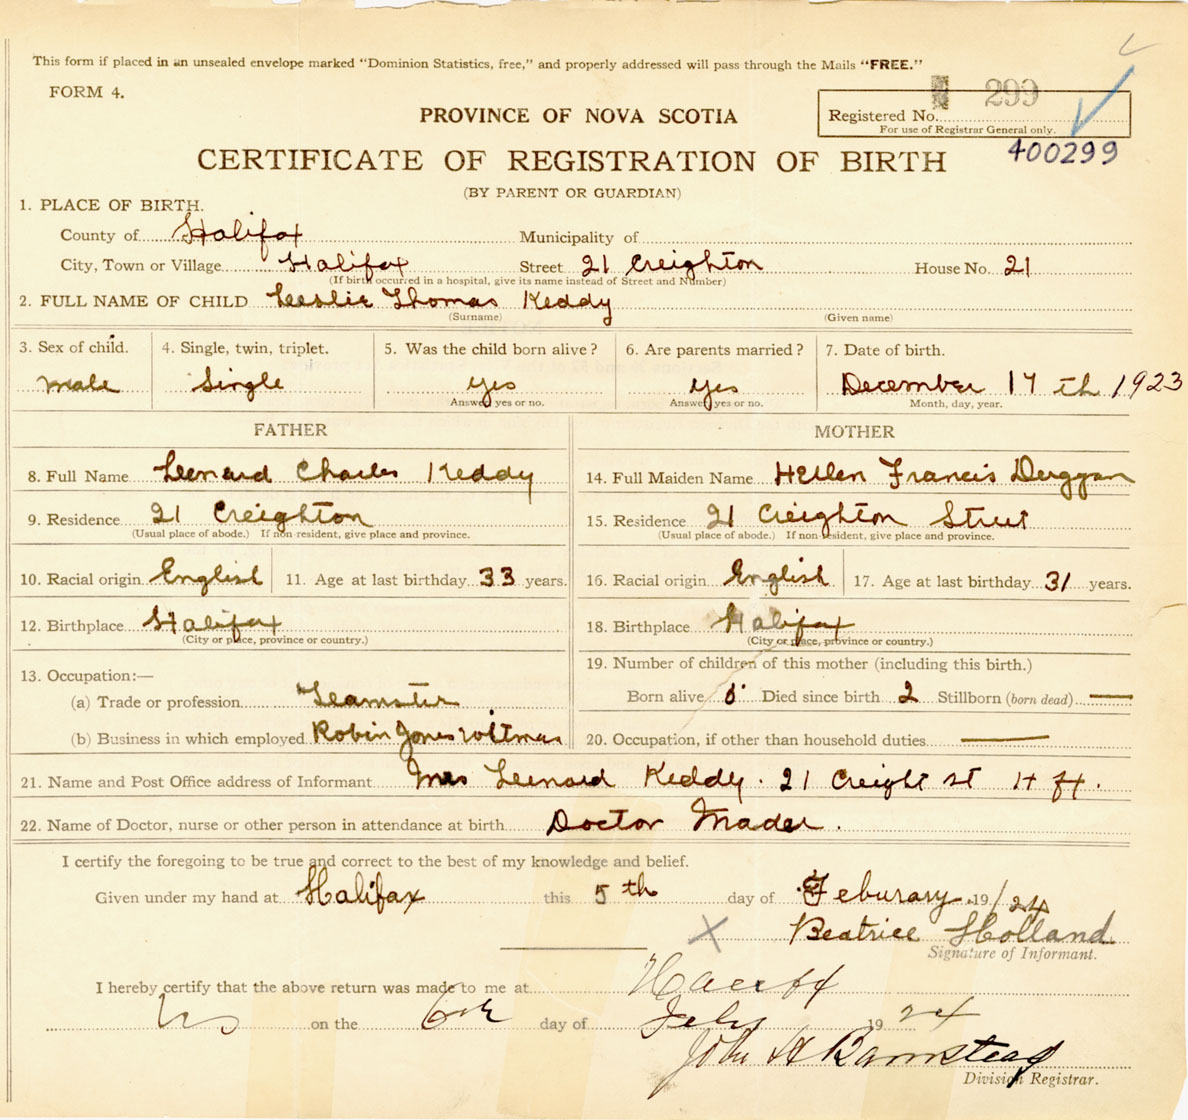 This form if placed in an unsealed envelope marked "Dominion Statistics, free," and properly addressed will pass through the Mails "FREE."
FORM 4.
299
PROVINCE OF NOVA SCOTIA
Registered No.
For use of Registrar General only.
400299
CERTIFICATE OF REGISTRATION OF BIRTH
(BY PARENT OR GUARDIAN)
1. PLACE OF BIRTH.
County of Halifax Municipality of
City, Town or Village Halifax Street 21 Creighton House No. 21
(If birth occurred in a hospital, give its name instead of Street and Number)
2. FULL NAME OF CHILD Leslie Thomas Keddy
(Surname) (Given name)
3. Sex of child. 4. Single, twin, triplet. 5. Was the child born alive? 6. Are parents married? 7. Date of birth.
male Single yes yes December 17 th 1923
Answer yes or no. Answer yes or no. Month, day, year.
FATHER MOTHER
8. Full Name Leenard Charles Keddy 14. Full Maiden Name Hellen Francis Duggan
9. Residence 21 Creighton 15. Residence 21 Creighton Street
(Usual place of abode.) If non-resident, give place and province. (Usual place of abode.) If non-resident, give place and province.
10. Racial origin English 11. Age at last birthday 33 years. 16. Racial origin English 17. Age at last birthday 31 years.
12. Birthplace Halifax 18. Birthplace Halifax
(City or place, province or country.) (City or place, province or country.)
13. Occupation:— 19. Number of children of this mother (including this birth.)
(a) Trade or profession Teamster Born alive Died since birth 2 Stillborn (born dead)
(b) Business in which employed Robin Jones 20. Occupation, if other than household duties
21. Name and Post Office address of Informant Mrs Leenard Keddy. 21 Creight st H fx.
22. Name of Doctor, nurse or other person in attendance at birth Doctor Mader.
I certify the foregoing to be true and correct to the best of my knowledge and belief.
Given under my hand at Halifax this 5th day of Feburary 19/24
X Beatrice Holland
Signature of Informant.
I hereby certify that the above return was made to me at
on the day of Feby 1924
John H Barnstead
Division Registrar.